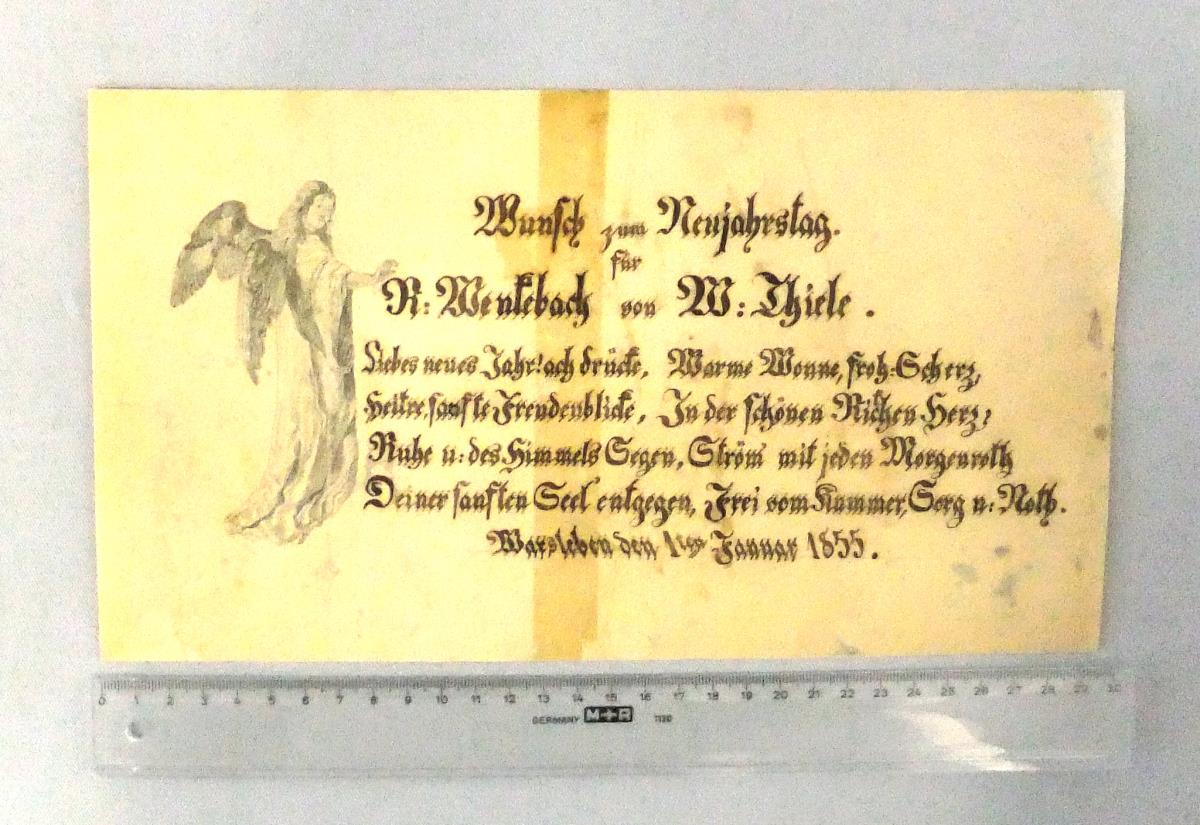 Wunsch zum Neujahrstag.
für
R: Wenkebach von W: Thiele.
Liebes neues Jahr! ach drücke, Warme Wonne, froh-Scherz,
Heitre, sanfte Freudenblicke, In der schönen Rickchen Herz;
Ruhe u: des Himmels Segen, Ström mit jeden Morgenroth
Deiner sanften Seel' entgegen, Frei vom Kummer, Sorg u: Noth.
Warsleben den 1ten Januar 1855.
0 1 2 3 4 5 6 7 8 9 10 11 12 13 14 15 16 17 18 19 20 21 22 23 24 25 26 27 28 29 30
GERMANY M+R 1130